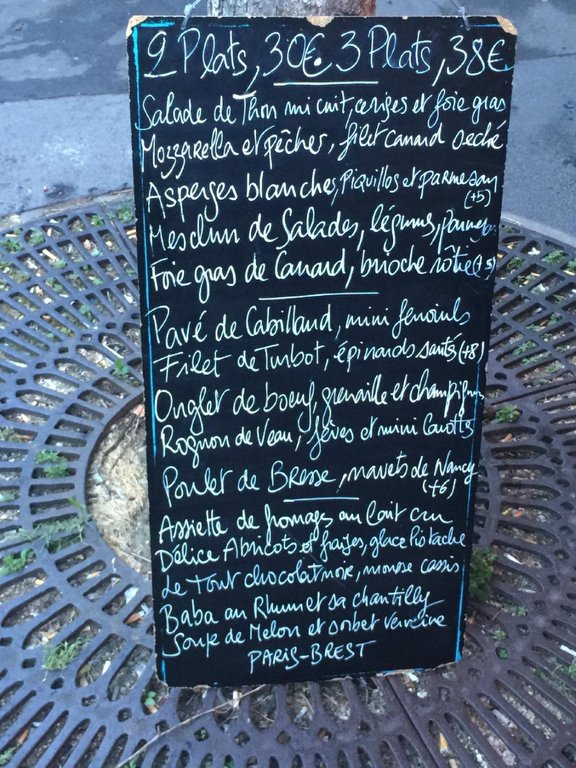 2 Plats, 30€. 3 Plats, 38€
Salade de Thon mi cuit, cerises et foie gras
Mozzarella et pêches, filet canard séché
Asperges blanches, Piquillos et parmesan
(+5)
Mesclun de Salades, légumes,
Foie gras de Canard, brioche rôtie (+5)
Pavé de Cabillaud, mini fenouils
Filet de Turbot, épinards sautés (+8)
Onglet de boeuf, grenaille et champignons
Rognon de Veau, fèves et mini carotts
Poulet de Bresse, navets de Nancy
(+6)
Assiette de fromages au lait cru
Délice Abricots et fraises, glace Pistache
Le Tout chocolat noir, cassis
Baba au Rhum et sa chantilly
Soupe de Melon et sorbet verveine
PARIS-BREST